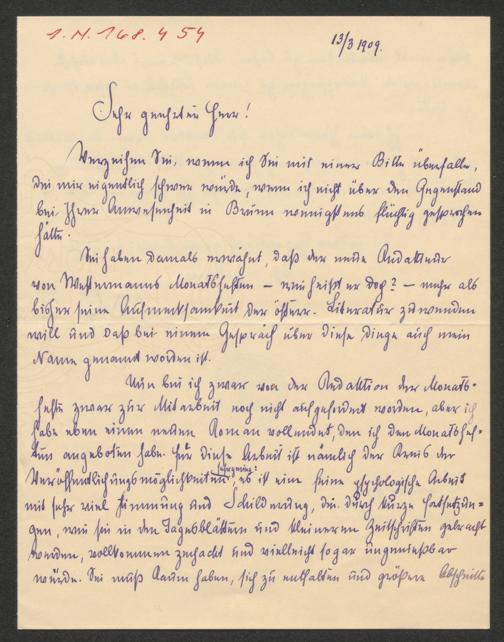 I.N. 168.454
13/3 1909.
Sehr geehrter Herr!
Verzeihen Sie, wenn ich Sie mit einer Bitte überfalle,
die mir eigentlich schwer würde, wenn ich nicht über den Gegenstand
bei Ihrer Anwesenheit in Brünn wenigstens flüchtig gesprochen
hätte.
Sie haben damals erwähnt, daß der neue Redakteur
von Westermanns Monatsheften – wie heißt er doch? – mehr als
bisher seine Aufmerksamkeit der österr. Literatur zuwenden
will und daß bei einem Gespräch über diese Dinge auch mein
Name genannt worden ist.
Nun bin ich zwar von der Redaktion der Monats-
hefte zwar zur Mitarbeit noch nicht aufgefordert worden, aber ich
habe eben einen neuen Roman vollendet, den ich den Monatshef-
ten angeboten habe. Für diese Arbeit ist nämlich der Kreis der
Veröffentlichungsmöglichkeiten sehr gering: es ist eine feine psychologische Arbeit
mit sehr viel Stimmung und Schilderung, die durch kurze Fortsetzun-
gen, wie sie in den Tagesblättern und kleineren Zeitschriften gebracht
werden, vollkommen zerhackt und vielleicht sogar ungenießbar
würde. Sie muß Raum haben, sich zu entfalten und größere Abschnitte